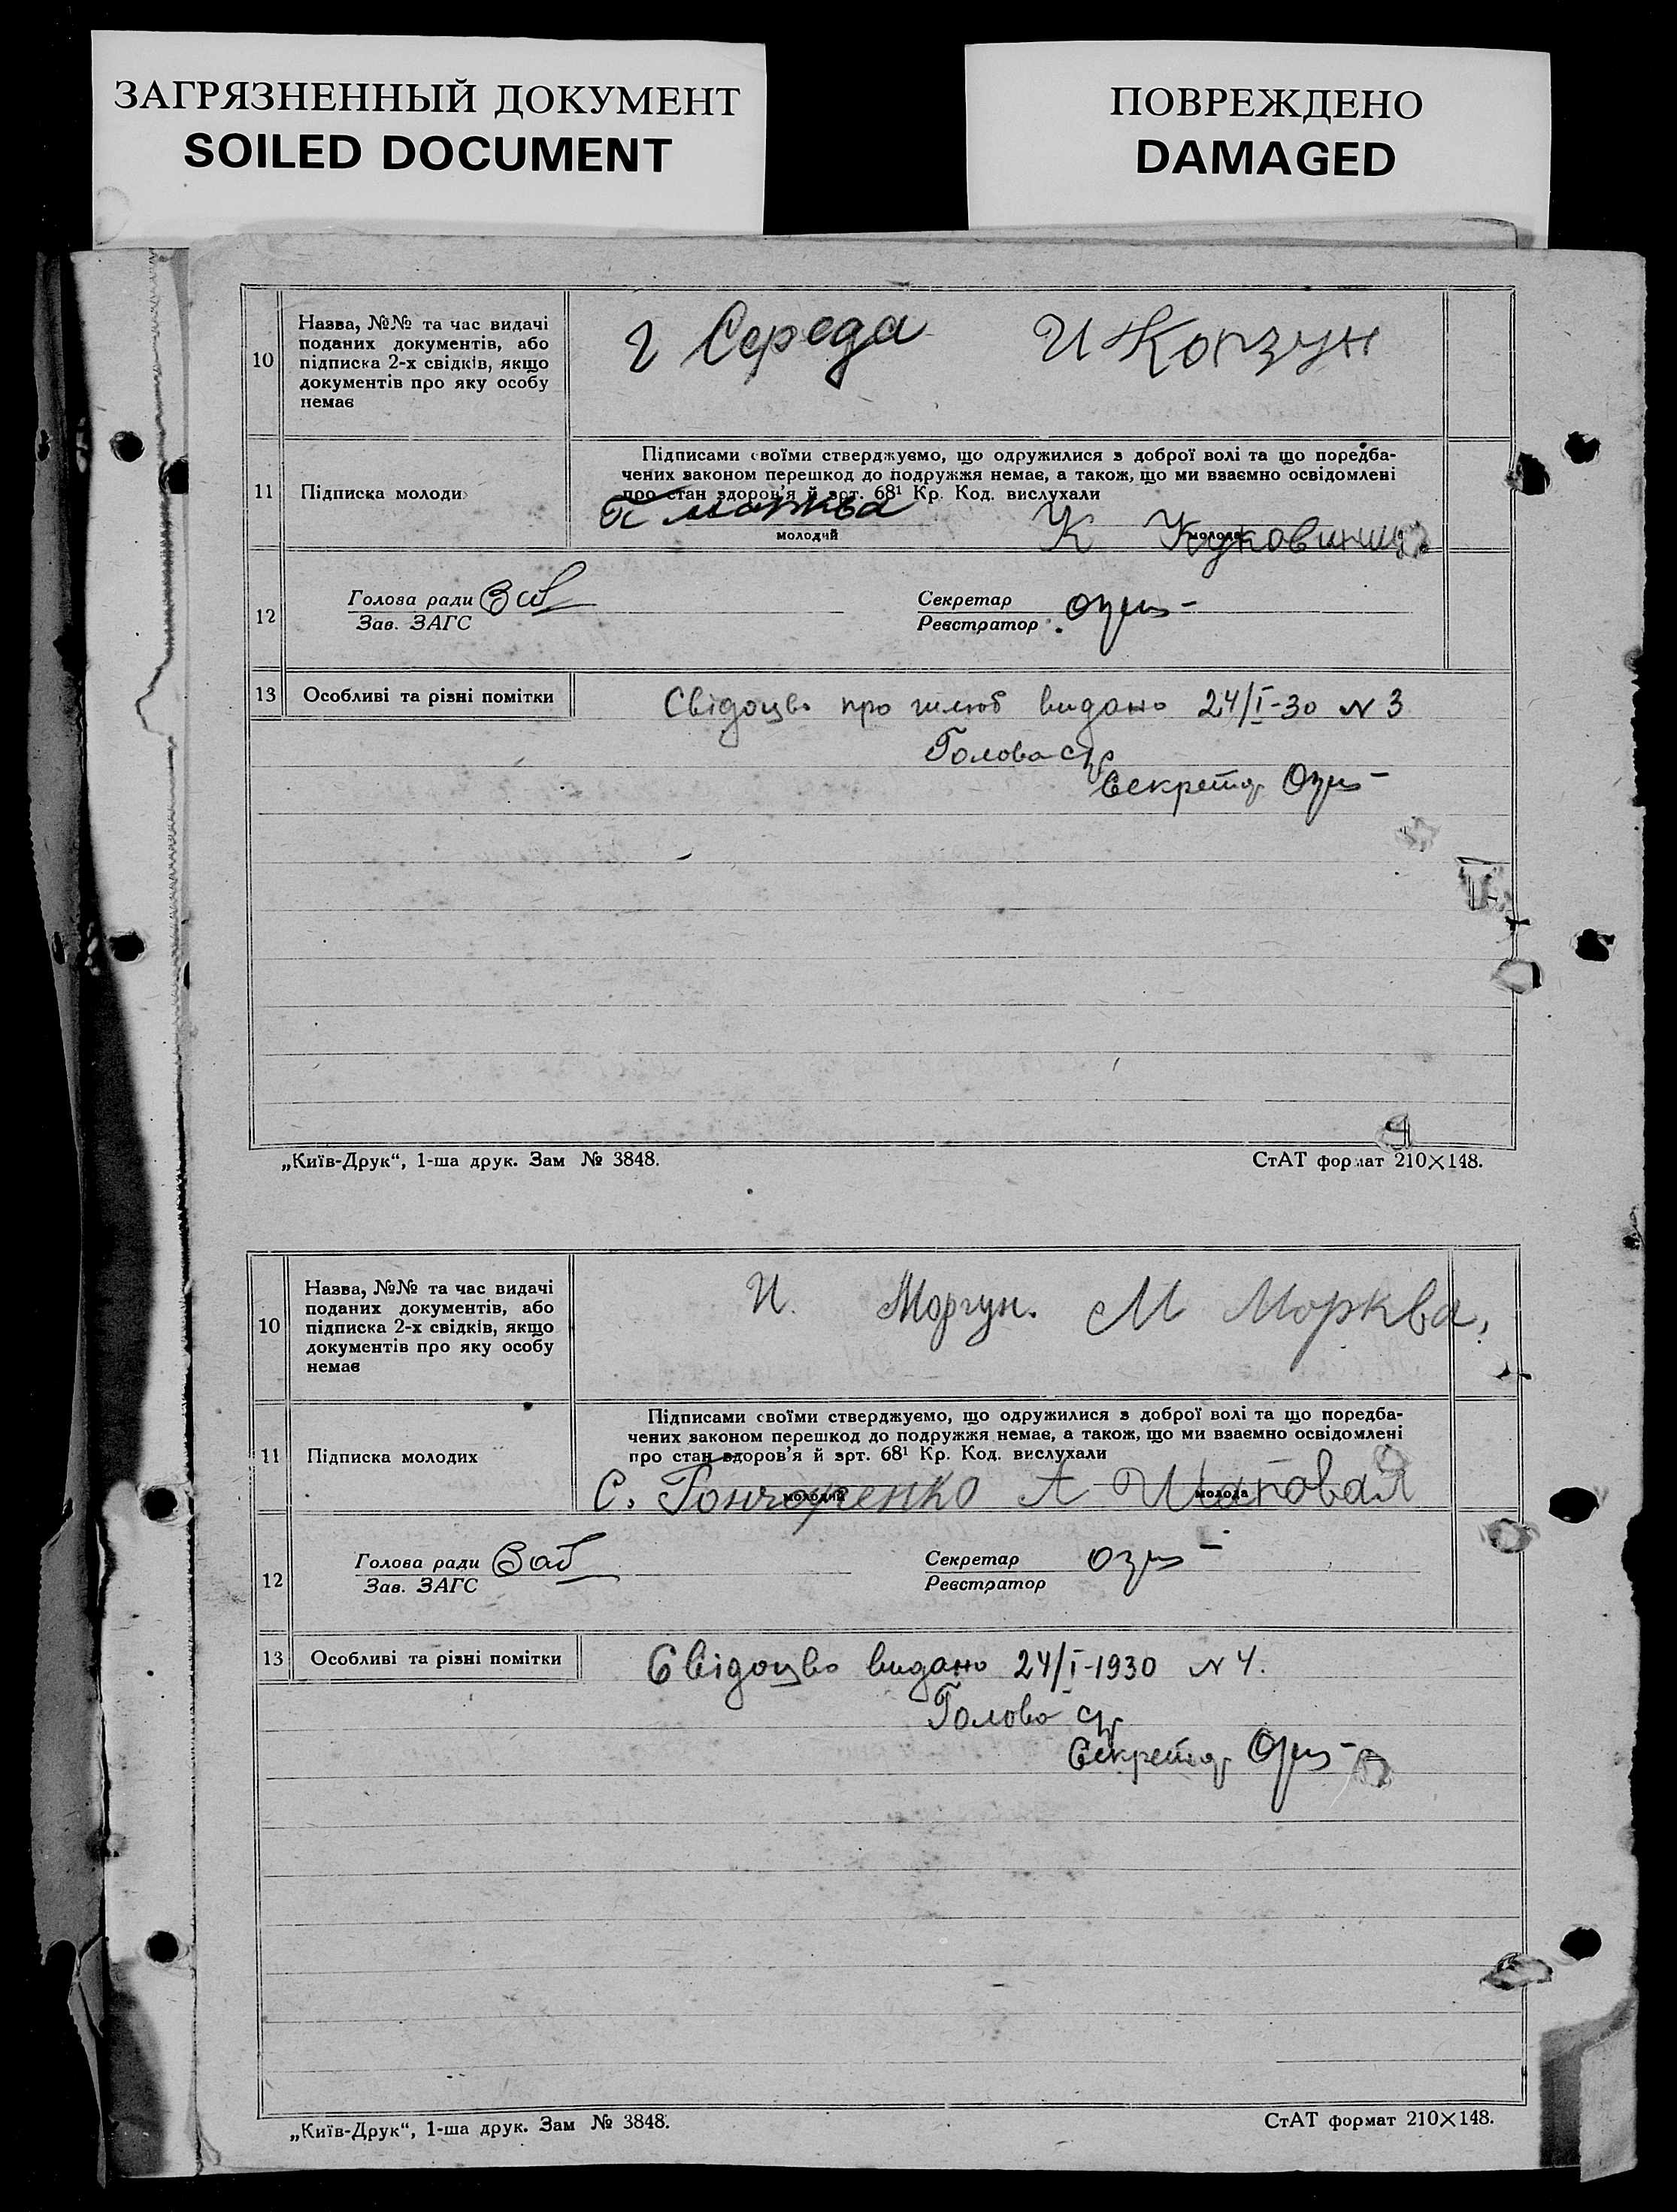 ЗАГРЯЗНЕННЫЙ ДОКУМЕНТ
SOILED DOCUMENT
ПОВРЕЖДЕНО
DAMAGED
10
Назва, №№ та час видачі
поданих документів, або
підписка 2-х свідків, якщо
документів про яку особу
немає
Г Середа И Копзун
11
Підписка молоди
Підписами своїми стверджуємо, що одружилися з доброї волі та що поредба-
чених законом перешкод до подружжя немає, а також, що ми взаємно освідомлені
про стан здоров'я й арт. 68¹ Кр. Код. вислухали
Морква К
молодий
молода
12
Голова ради
Зав. ЗАГС
Секретар
Реєстратор
13
Особливі та різні помітки
Свідоцво про шлюб видано 24/I-30 N 3
Голова с/р
Секретар
„Київ-Друк“, 1-ша друк. Зам № 3848.
СтАТ формат 210×148.
10
Назва, №№ та час видачі
поданих документів, або
підписка 2-х свідків, якщо
документів про яку особу
немає
И. Моргун. М Морква,
11
Підписка молодих
Підписами своїми стверджуємо, що одружилися з доброї волі та що поредба-
чених законом перешкод до подружжя немає, а також, що ми взаємно освідомлені
про стан здоров'я й арт. 68¹ Кр. Код. вислухали
С. Гончаренко А Шаповал
молодий
молода
12
Голова ради
Зав. ЗАГС
Секретар
Реєстратор
13
Особливі та різні помітки
Свідоцво видано 24/I-1930 N 4.
Голова с/р
Секретар
„Київ-Друк“, 1-ша друк. Зам № 3848.
СтАТ формат 210×148.